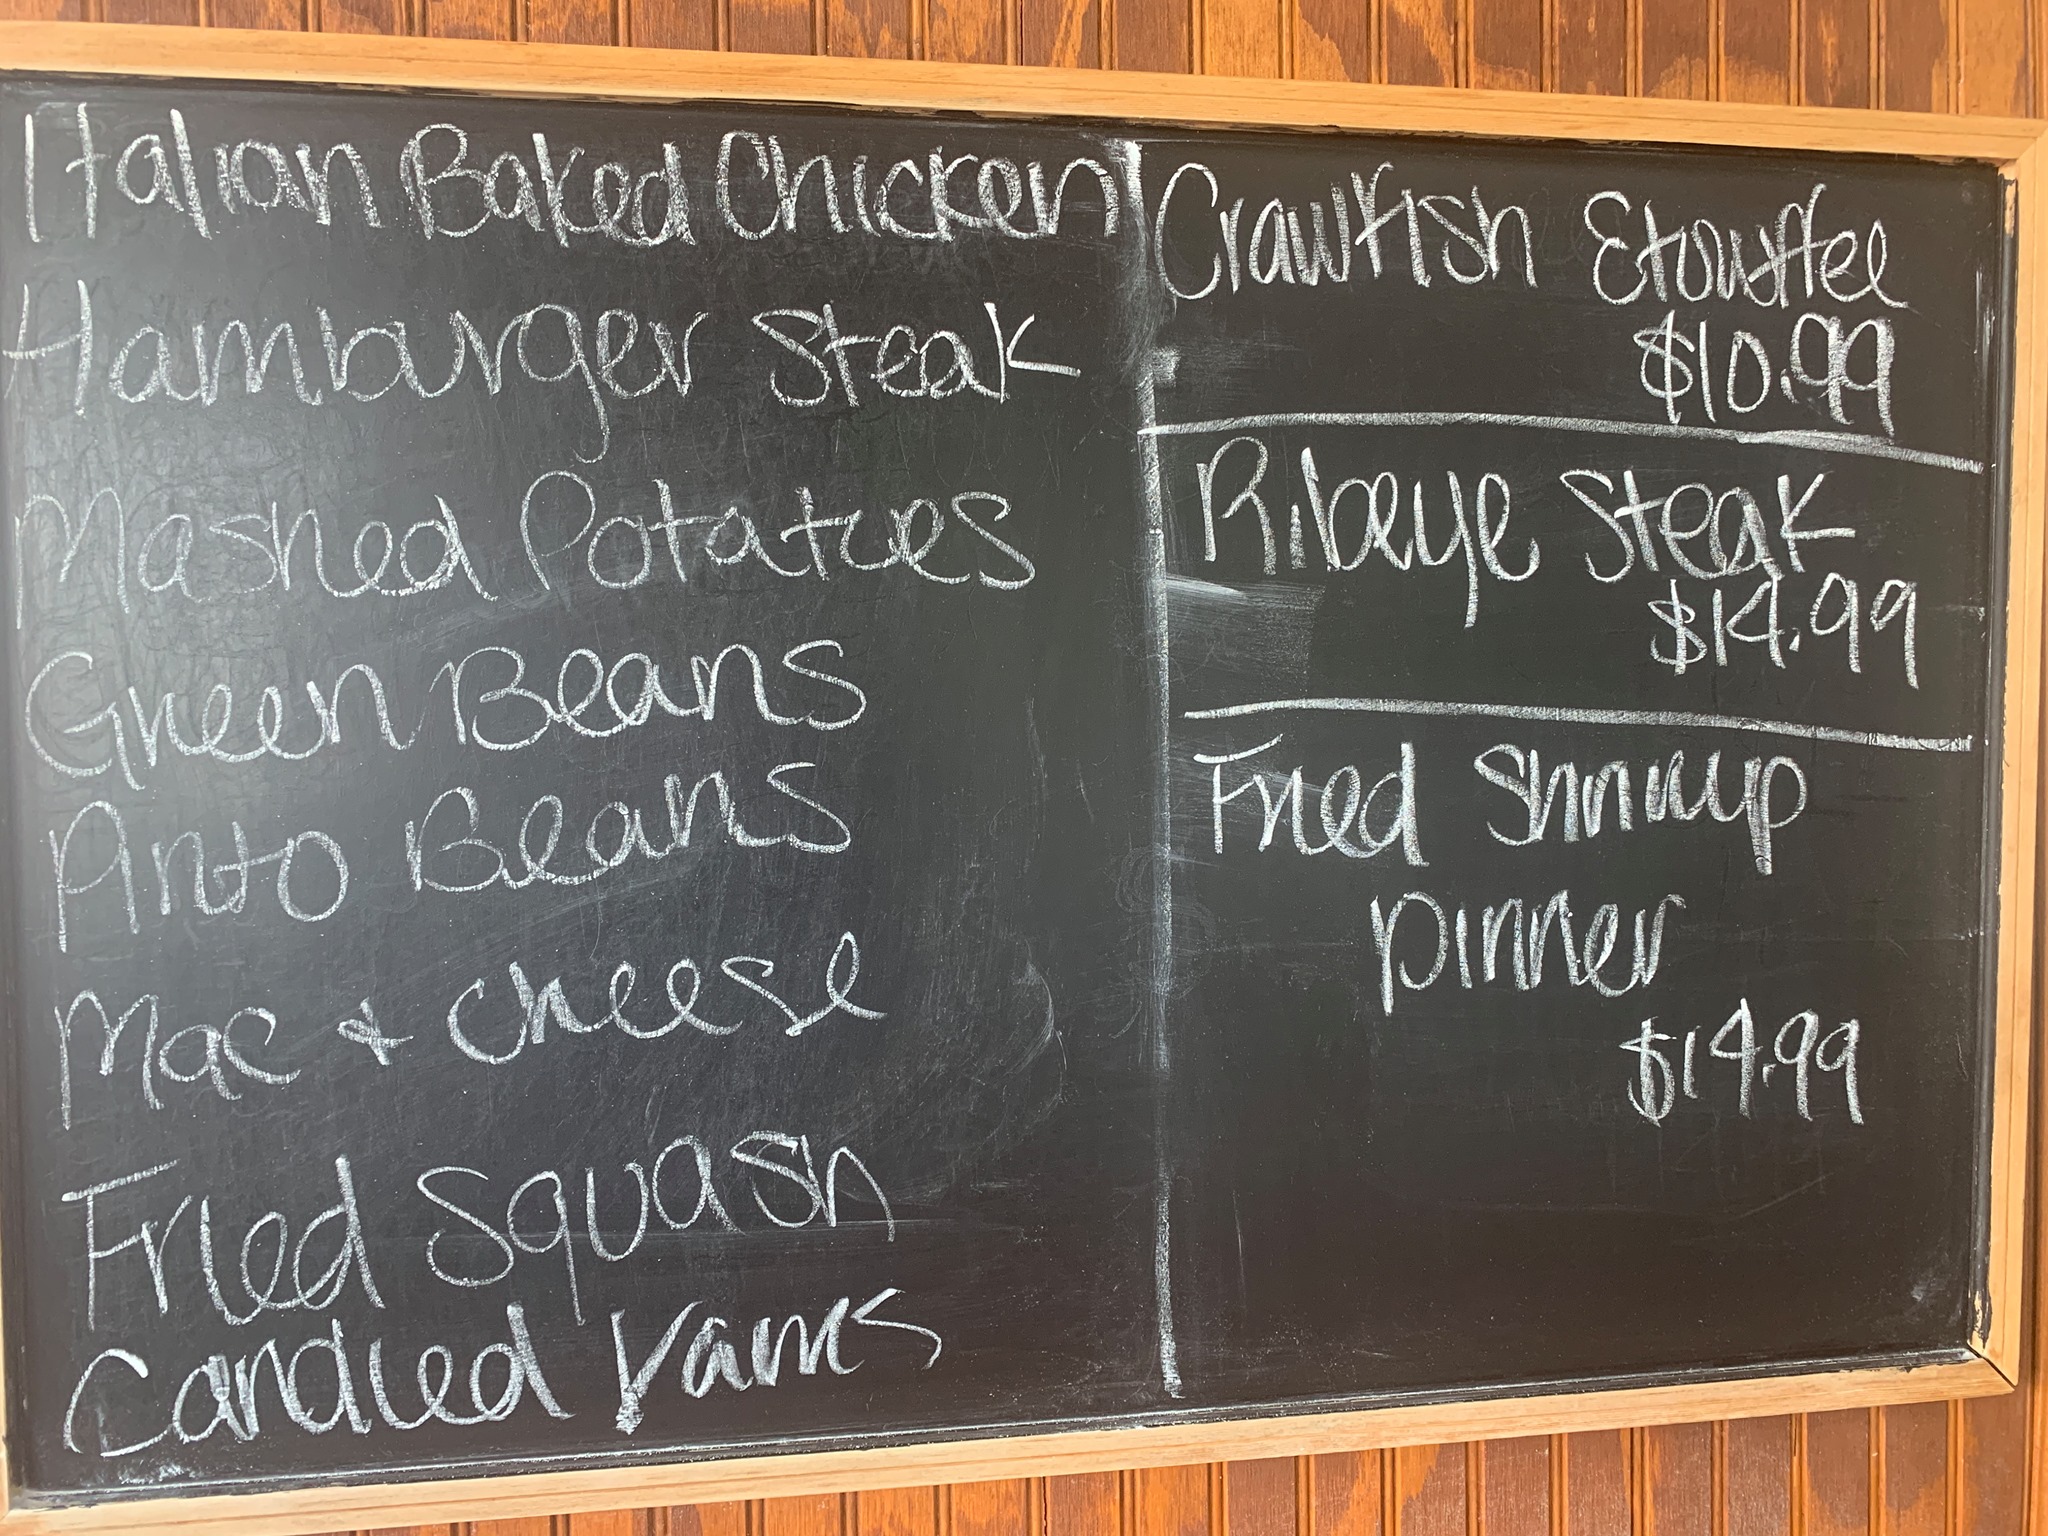 Italian Baked Chicken
Hamburger Steak
Mashed Potatoes
Green Beans
Pinto Beans
Mac & cheese
Fried Squash
Candied Yams
Crawfish Etouffee
$10.99
Ribeye Steak
$14.99
Fried Shrimp
Dinner
$14.99